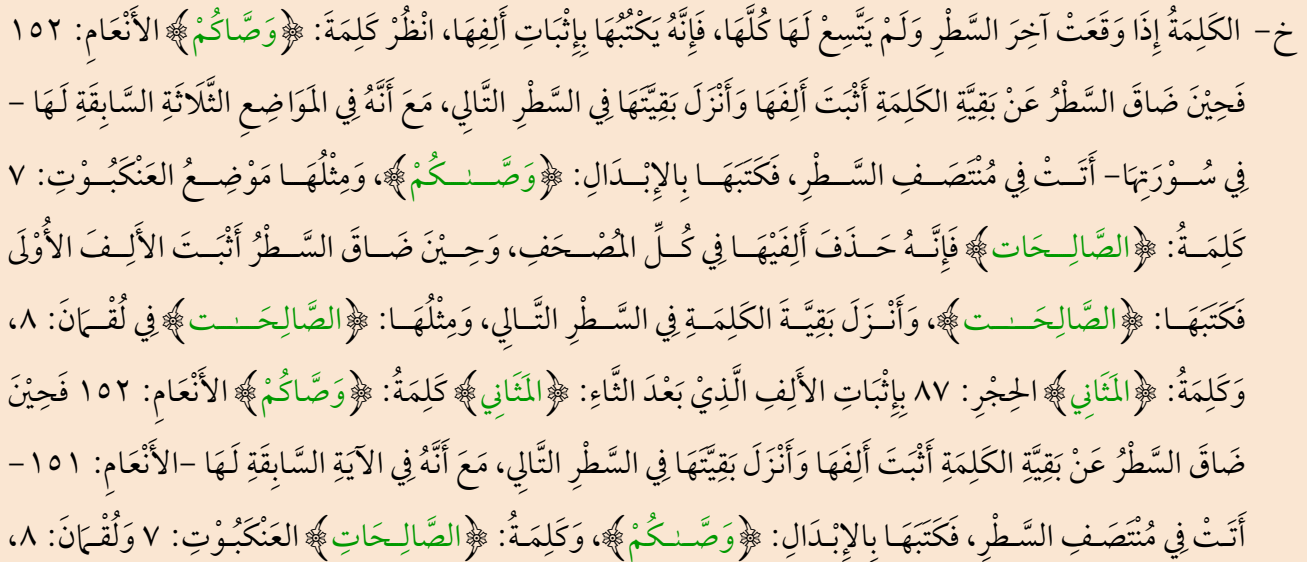 خ- الكَلِمَةُ إِذَا وَقَعَتْ آخِرَ السَّطْرِ وَلَمْ يَتَّسِعْ لَهَا كُلَّهَا، فَإِنَّهُ يَكْتُبُهَا بِإِثْبَاتِ أَلِفِهَا، انْظُرْ كَلِمَةَ: ﴿وَصَّاكُمْ﴾ الأَنْعَامِ: ١٥٢
فَحِيْنَ ضَاقَ السَّطْرُ عَنْ بَقِيَّةِ الكَلِمَةِ أَثْبَتَ أَلِفَهَا وَأَنْزَلَ بَقِيَّتَهَا فِي السَّطْرِ التَّالِي، مَعَ أَنَّهُ فِي المَوَاضِعِ الثَّلَاثَةِ السَّابِقَةِ لَهَا –
فِي سُوْرَتِهَا– أَتَتْ فِي مُنْتَصَفِ السَّطْرِ، فَكَتَبَهَا بِالإِبْدَالِ: ﴿وَصَّـٰكُمْ﴾، وَمِثْلُهَا مَوْضِعُ العَنْكَبُوْتِ: ٧
كَلِمَةُ: ﴿الصَّالِحَات﴾ فَإِنَّهُ حَذَفَ أَلِفَيْهَا فِي كُلِّ المُصْحَفِ، وَحِيْنَ ضَاقَ السَّطْرُ أَثْبَتَ الأَلِفَ الأُوْلَى
فَكَتَبَهَا: ﴿الصَّالِحَـٰت﴾، وَأَنْزَلَ بَقِيَّةَ الكَلِمَةِ فِي السَّطْرِ التَّالِي، وَمِثْلُهَا: ﴿الصَّالِحَـٰت﴾ فِي لُقْمَانَ: ٨،
وَكَلِمَةُ: ﴿المَثَانِي﴾ الحِجْرِ: ٨٧ بِإِثْبَاتِ الأَلِفِ الَّذِيْ بَعْدَ الثَّاءِ: ﴿المَثَانِي﴾ كَلِمَةُ: ﴿وَصَّاكُمْ﴾ الأَنْعَامِ: ١٥٢ فَحِيْنَ
ضَاقَ السَّطْرُ عَنْ بَقِيَّةِ الكَلِمَةِ أَثْبَتَ أَلِفَهَا وَأَنْزَلَ بَقِيَّتَهَا فِي السَّطْرِ التَّالِي، مَعَ أَنَّهُ فِي الآيَةِ السَّابِقَةِ لَهَا –الأَنْعَامِ: ١٥١–
أَتَتْ فِي مُنْتَصَفِ السَّطْرِ، فَكَتَبَهَا بِالإِبْدَالِ: ﴿وَصَّـٰكُمْ﴾، وَكَلِمَةُ: ﴿الصَّالِحَاتِ﴾ العَنْكَبُوْتِ: ٧ وَلُقْمَانَ: ٨،